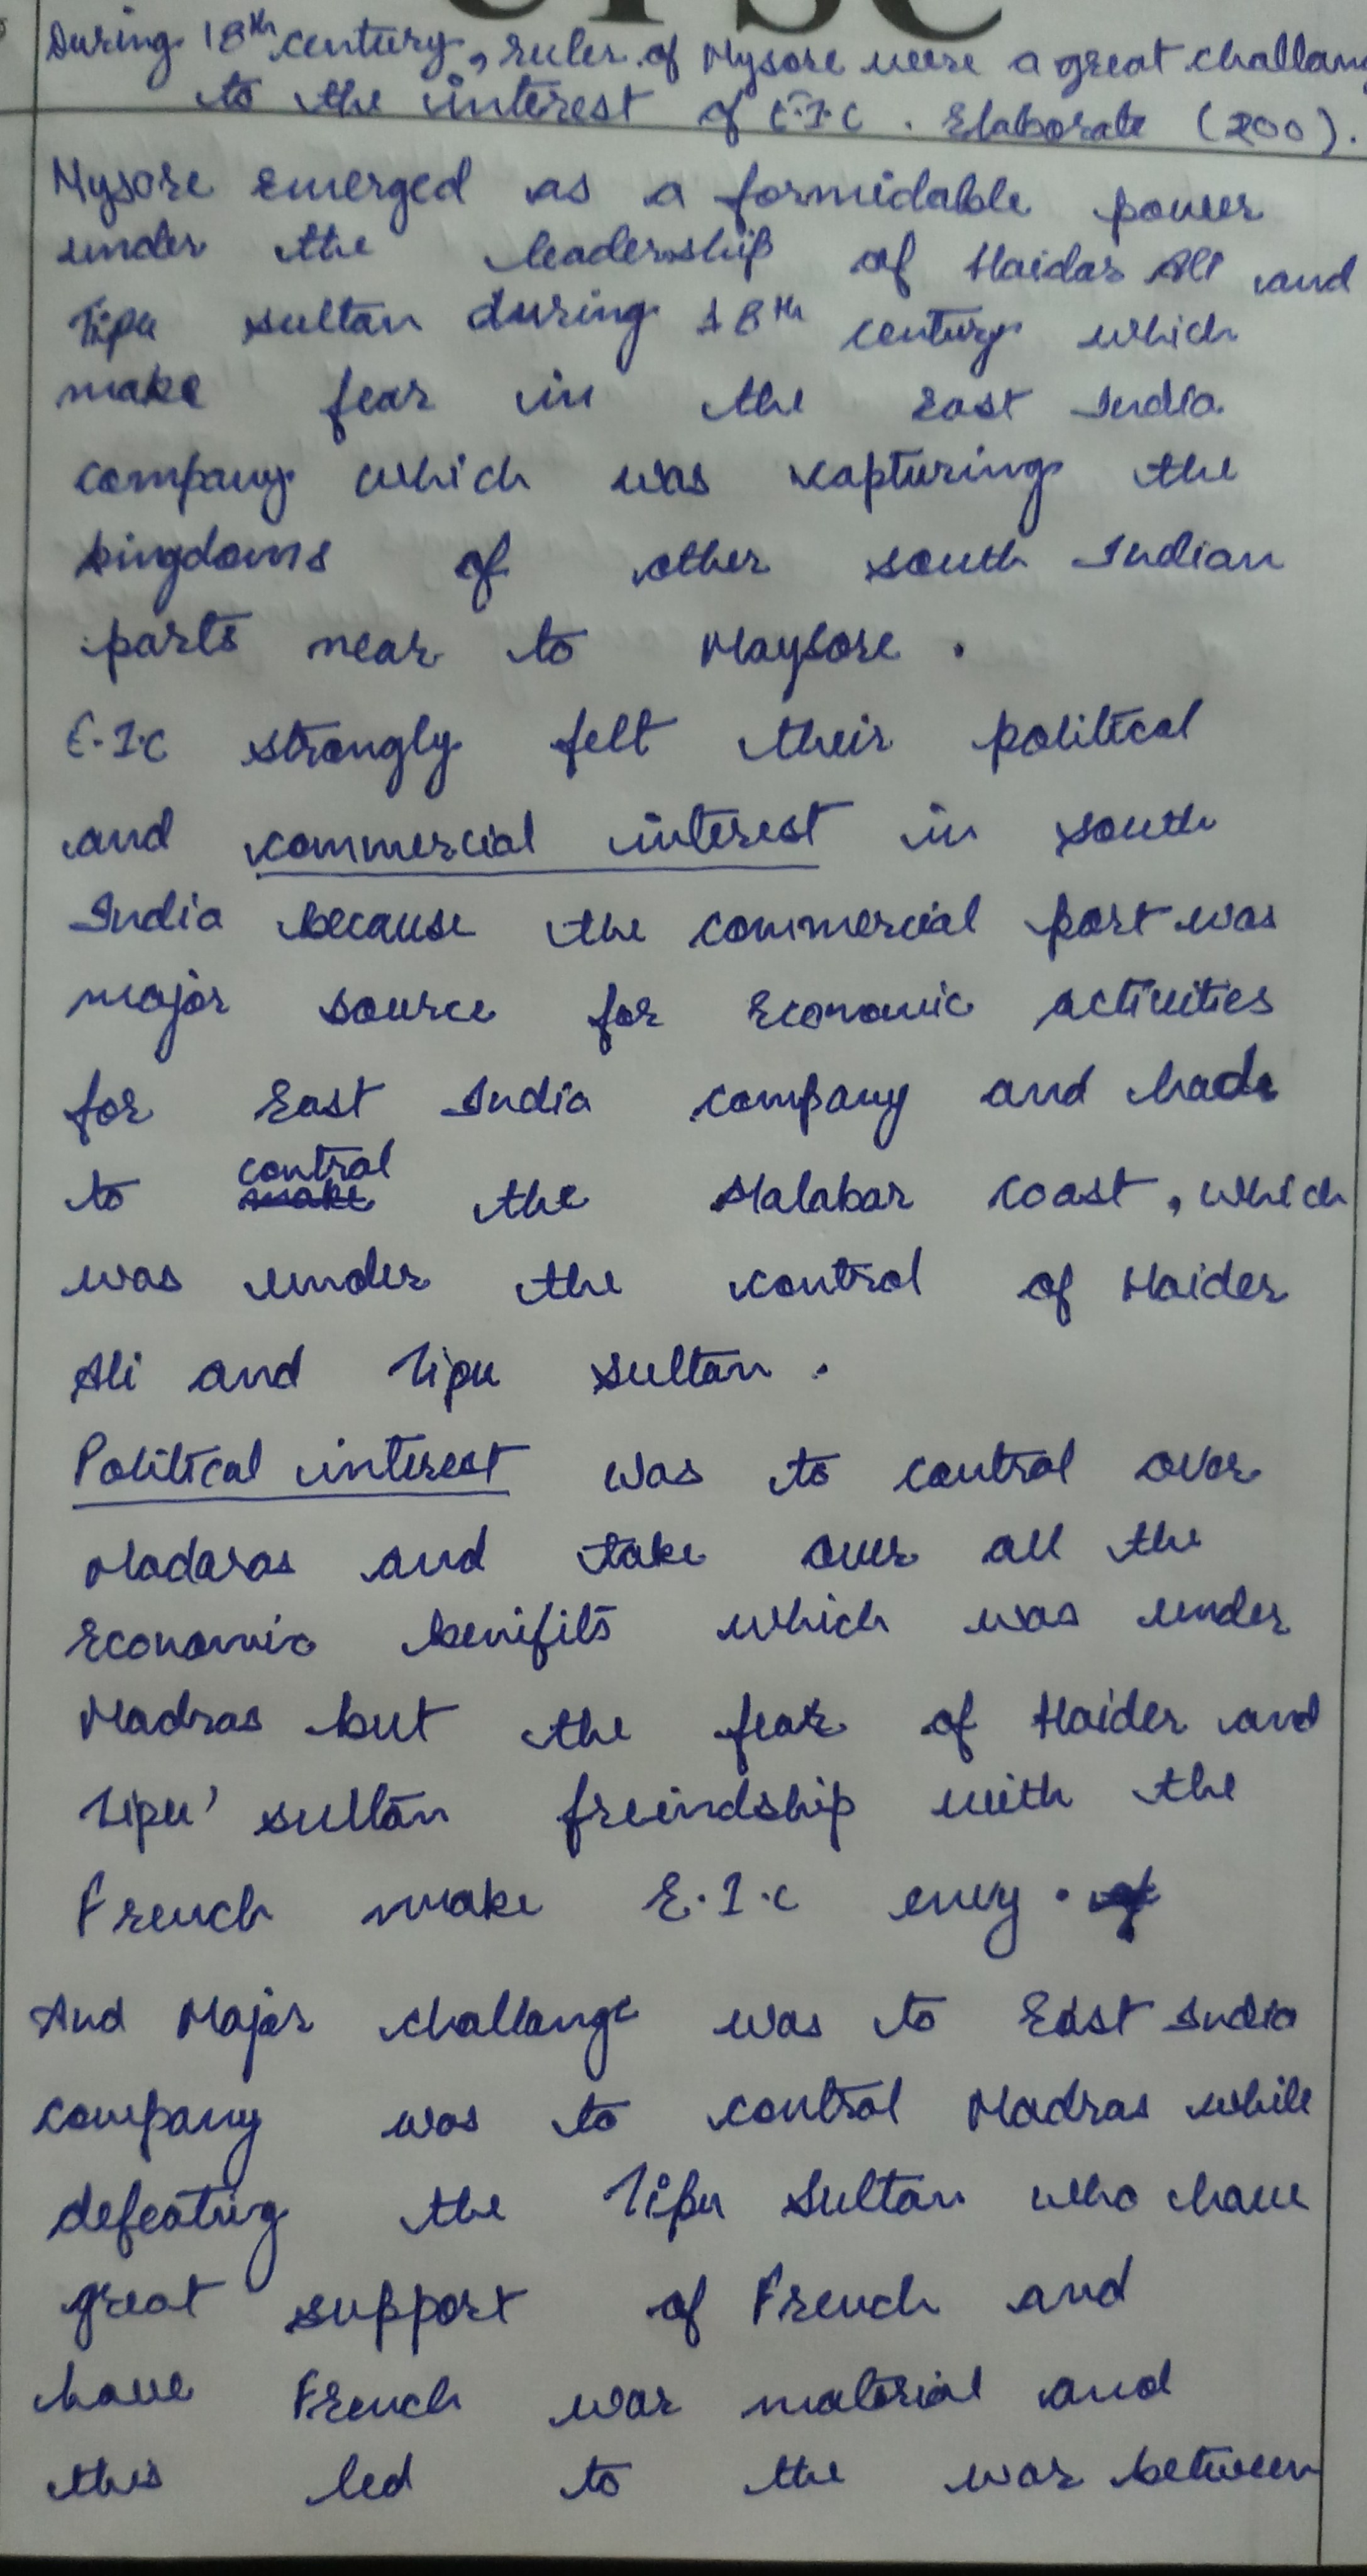 UPSC
During 18th century, ruler of Mysore were a great challan
to the interest of E.I.C. Elaborate (200).
Mysore emerged as a formidable power
under the leadership of Haidar Ali and
Tipu sultan during 18th century which
make fear in the East India
company which was capturing the
kingdoms of other south Indian
parts near to Maysore.
E.I.C strongly felt their political
and commercial interest in south
India because the commercial part was
major source for Economic activities
for East India company and had
to control the Malabar coast, which
was under the control of Haider
Ali and Tipu sultan.
Political interest was to control over
Madaras and take over all the
Economic benifits which was under
Madras but the fear of Haider and
Tipu' sultan freindship with the
French make E.I.C envy.
And Major challange was to East India
company was to control Madras while
defeating the Tipu Sultan who have
great support of French and
have French war material and
this led to the war between